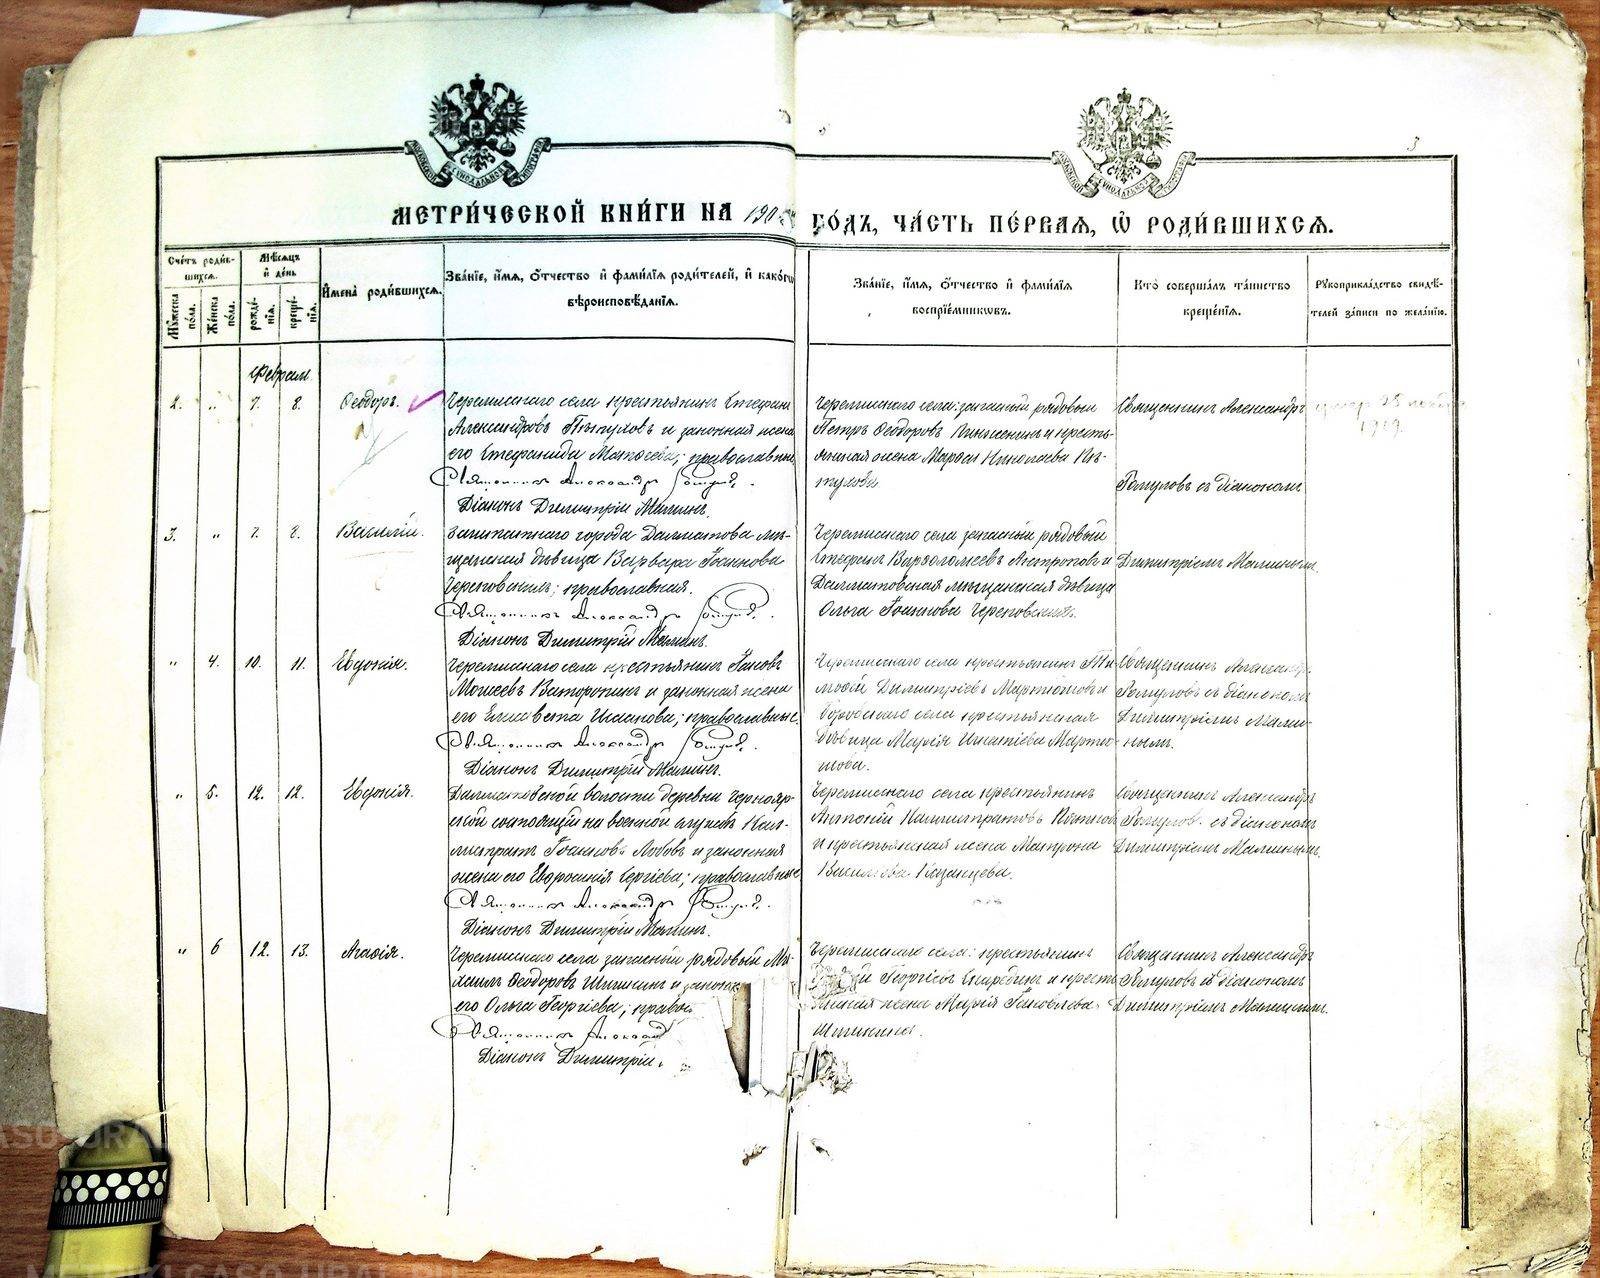 МОСКОВСКОЙ СИНОДАЛЬНОЙ ТИПОГРАФІИ
МОСКОВСКОЙ СИНОДАЛЬНОЙ ТИПОГРАФІИ
3
МЕТРИ́ЧЕСКОЙ КНИ́ГИ НА 190 ГО́ДЪ, ЧА́СТЬ ПЕ́РВАЯ, Ѽ РОДИ́ВШИХСЯ.
Сче́тъ роди́в-
шихся.
Мѣ́сяцъ
и҆ де́нь
Мꙋ́жеска по́ла.
Же́нска по́ла.
рожде́-
нїя.
креще́-
нїя.
И҆мена̀ роди́вшихся.
Зва́нїе, и҆́мя, ѻ҆́тчество и҆ фами́лїя роди́телей, и҆ како́гѡ
вѣроисповѣ́данїя.
Зва́нїе, и҆́мя, ѻ҆́тчество и҆ фами́лїя
воспрїе́мникѡвъ.
Кто̀ соверша́лъ та́инство
креще́нїя.
Рꙋкоприкла́дство свидѣ́-
телей за́писи по жела́нїю.
Февраль
2. " 7. 8. Ѳеодоръ.
Черемисскаго села крестьянинъ Стефанъ
Александровъ и законная жена
его Стефанида Матѳеева; православные
Священникъ Александръ
Діаконъ Димитрій Малинъ.
Черемисскаго села: запасный рядовый
Петръ Ѳеодоровъ и кресть-
янская жена Марѳа Николаева
Священникъ Александръ
съ діакономъ
1919.
3. " 7. 8. Василій.
Заштатнаго города Далматова мѣ-
щанская дѣвица Варвара Іоаннова
Череповская; православная.
Священникъ Александръ
Діаконъ Димитрій Малинъ.
Черемисскаго села запасный рядовый
Стефанъ Варѳоломеевъ и
Далматовская мѣщанская дѣвица
Ольга Іоаннова Череповская.
Димитріемъ Малинымъ.
" 4. 10. 11. Евдокія.
Черемисскаго села крестьянинъ Іаковъ
Моисеевъ и законная жена
его Елисавета Исакова; православные.
Священникъ Александръ
Діаконъ Димитрій Малинъ.
Черемисскаго села крестьянинъ Ти-
моѳей Димитріевъ и
села крестьянская
дѣвица Марія Игнатіева

Священникъ Александръ
съ діакономъ
Димитріемъ Мали-
нымъ.
" 5. 12. 12. Евдокія.
Далматовской волости деревни Чернояр-
ской состоящій на военной службѣ Кал-
листратъ Іоанновъ и законная
жена его Евфросинія Сергіева; православные
Священникъ Александръ
Діаконъ Димитрій Малинъ.
Черемисскаго села крестьянинъ
Антоній Каллистратовъ
и крестьянская жена Матрона
Васильева Казанцева.
Священникъ Александръ
съ діакономъ
Димитріемъ Малинымъ.
" 6 12. 13. Агаѳія.
Черемисскаго села запасный рядовый Ми-
хаилъ Ѳеодоровъ Шишкинъ и законн
его Ольга Георгіева; правос
Священникъ Александ
Діаконъ Димитрій
Черемисскаго села: крестьянинъ
Георгіевъ и кресть-
янская жена Марія Іаковлева
Шишкина.
Священникъ Александръ
съ діакономъ
Димитріемъ Малинымъ.
METRIKI.GASO-URAL.RU